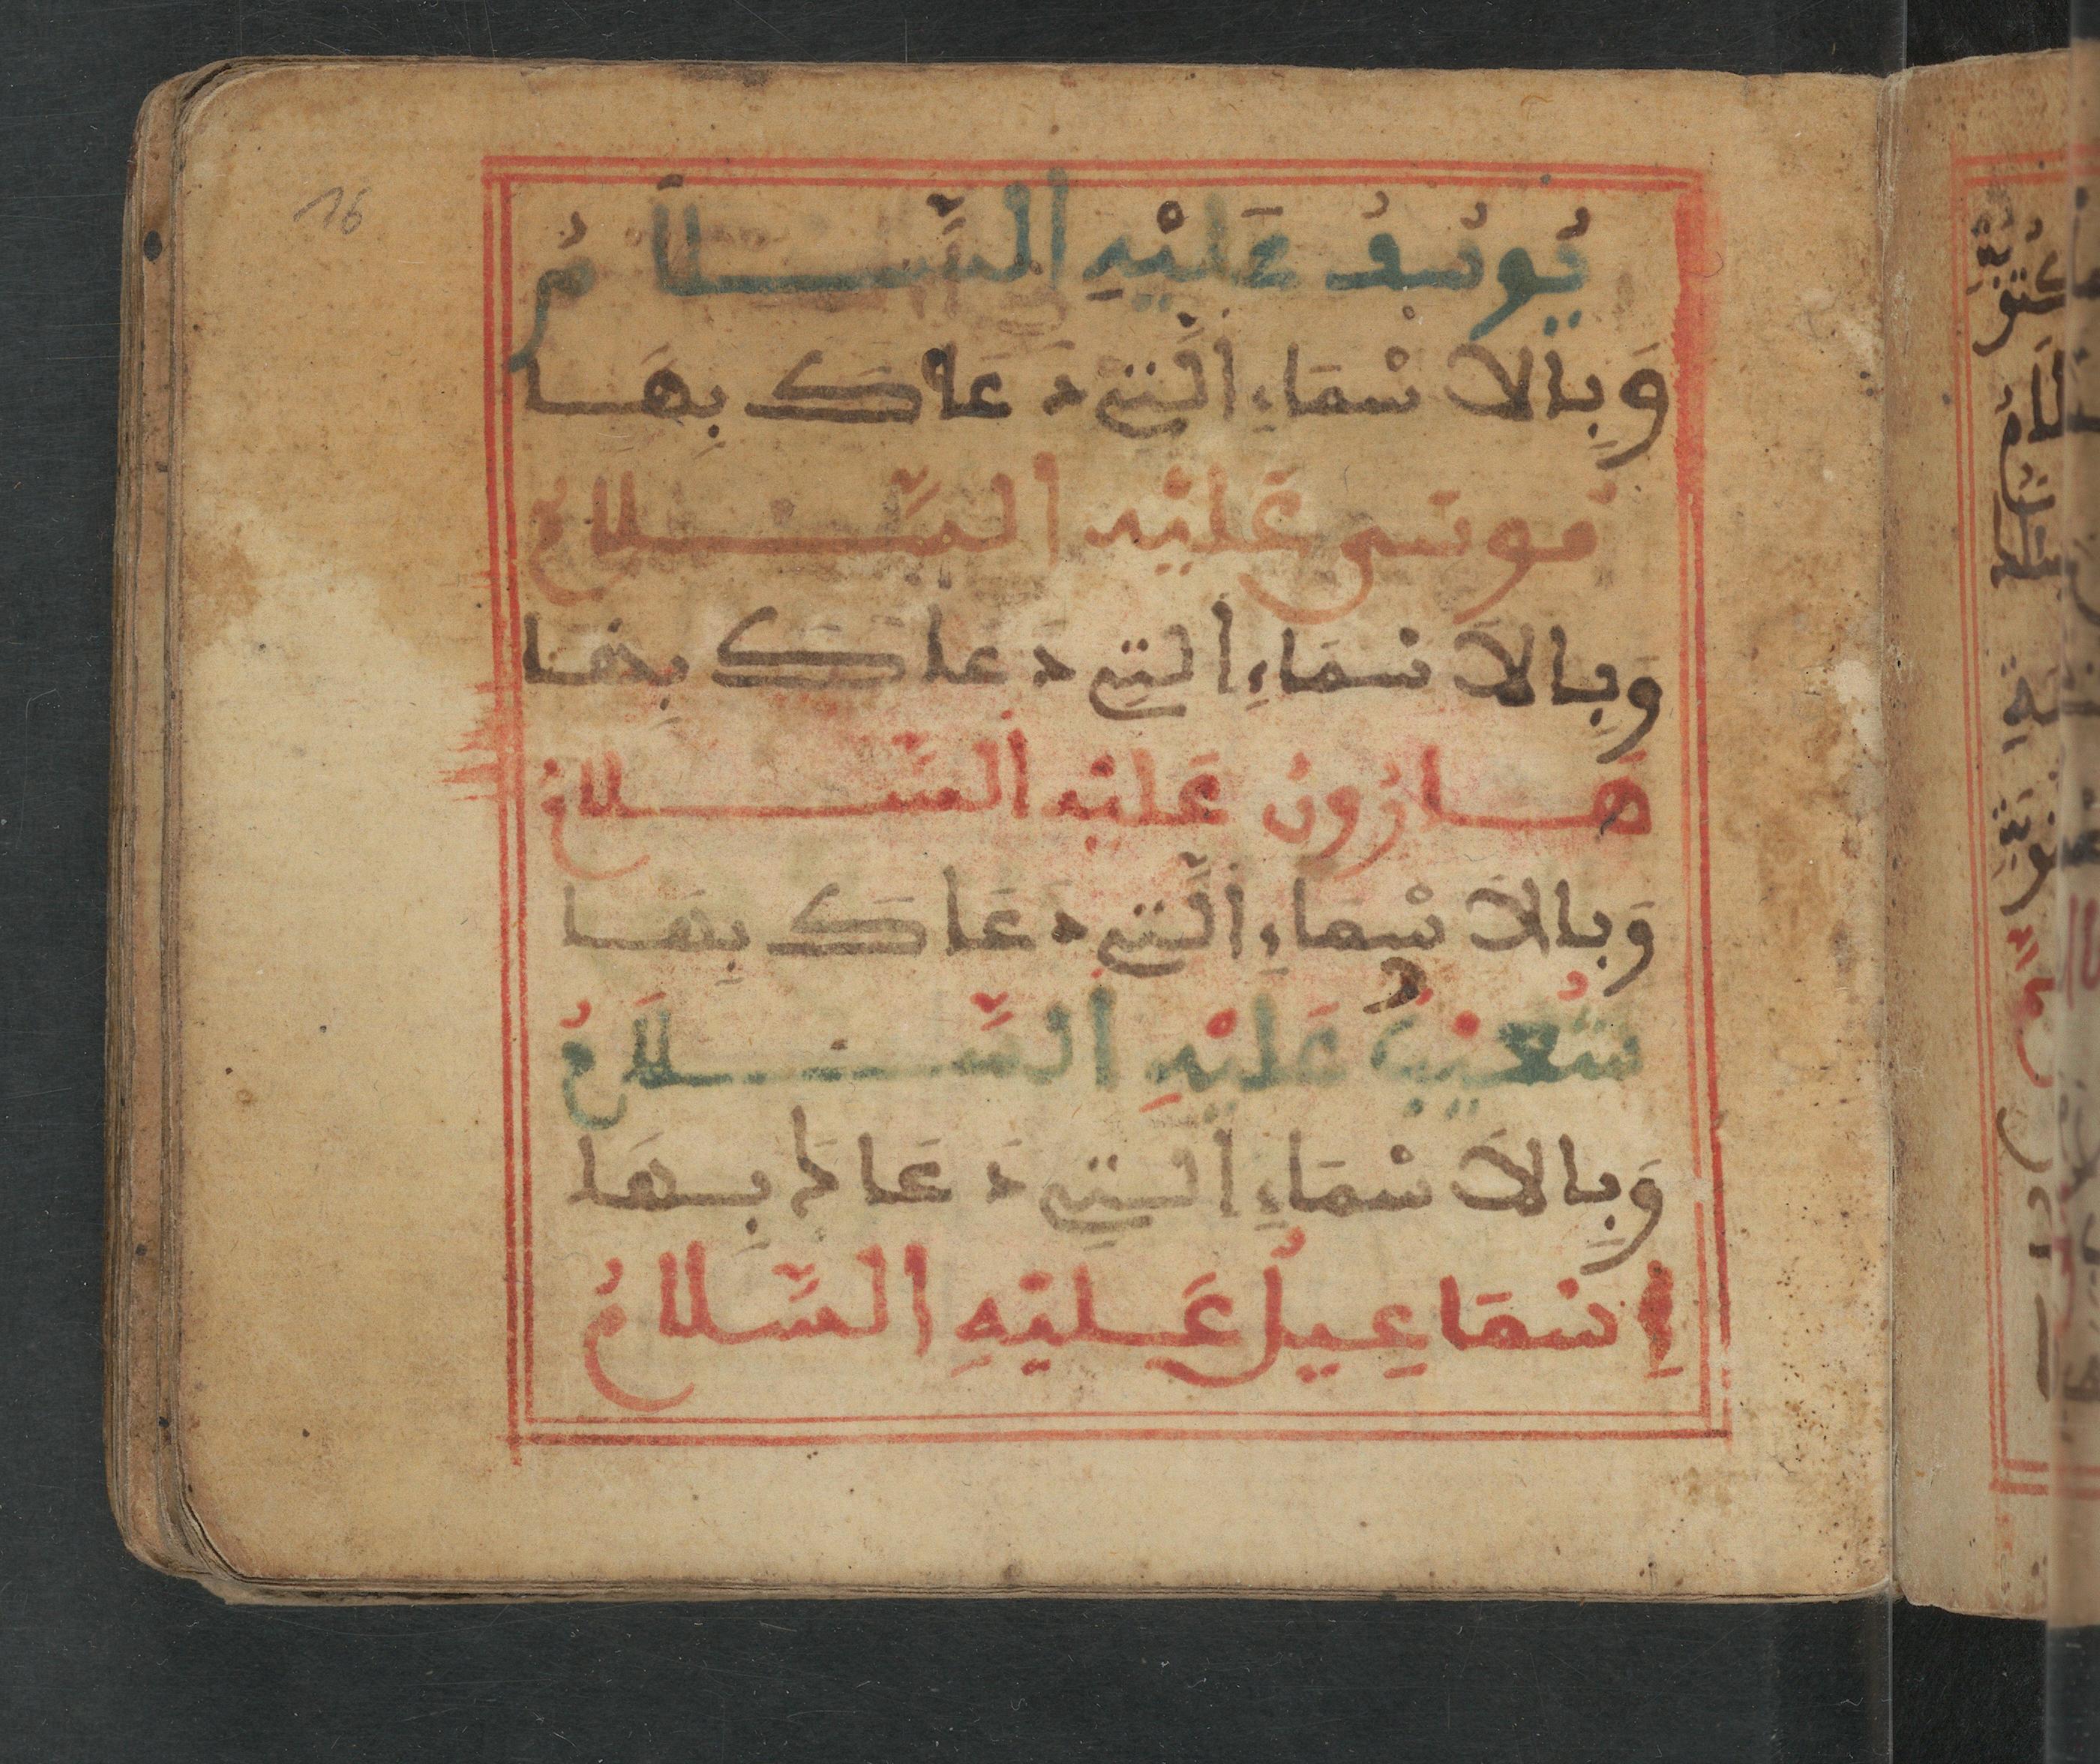 16
يُوسُفُ عَلَيْهِ السَّلَامُ
وَبِالاَسْمَاءِ الَّتِي دَعَاكَ بِهَا
مُوسَى عَلَيْهِ السَّلَامُ
وَبِالاَسْمَاءِ الَّتِي دَعَاكَ بِهَا
هَارُونُ عَلَيْهِ السَّلَامُ
وَبِالاَسْمَاءِ الَّتِي دَعَاكَ بِهَا
شُعَيْبُ عَلَيْهِ السَّلَامُ
وَبِالاَسْمَاءِ الَّتِي دَعَاكَ بِهَا
إِسْمَاعِيلُ عَلَيْهِ السَّلَامُ